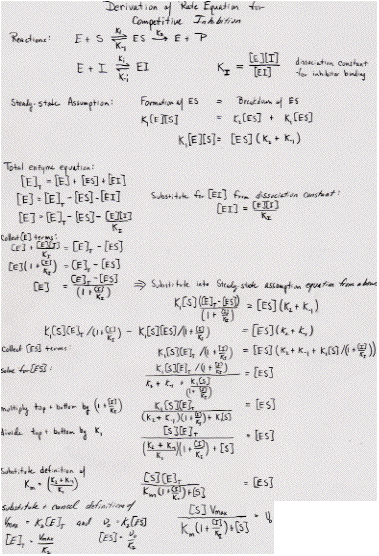 Derivation of Rate Equation for
Competitive Inhibition
Reactions: E + S ⇌ ES → E + P
K₁ K₋₁ K₂
E + I ⇌ EI
Kᵢ K₋ᵢ
K_I = [E][I] / [EI] dissociation constant for inhibitor binding
Steady-state Assumption: Formation of ES = Breakdown of ES
K₁[E][S] = K₂[ES] + K₋₁[ES]
K₁[E][S] = [ES](K₂ + K₋₁)
Total enzyme equation:
[E]_T = [E] + [ES] + [EI]
[E] = [E]_T - [ES] - [EI] Substitute for [EI] from dissociation constant:
[E] = [E]_T - [ES] - [E][I]/K_I [EI] = [E][I]/K_I
Collect [E] terms:
[E] + [E][I]/K_I = [E]_T - [ES]
[E](1 + [I]/K_I) = [E]_T - [ES]
[E] = ([E]_T - [ES]) / (1 + [I]/K_I) ⇒ Substitute into Steady-state assumption equation from above
K₁[S]([E]_T - [ES]) / (1 + [I]/K_I) = [ES](K₂ + K₋₁)
K₁[S][E]_T /(1 + [I]/K_I) - K₁[S][ES]/(1 + [I]/K_I) = [ES](K₂ + K₋₁)
Collect [ES] terms: K₁[S][E]_T /(1 + [I]/K_I) = [ES](K₂ + K₋₁ + K₁[S]/(1 + [I]/K_I))
Solve for [ES]: K₁[S][E]_T /(1 + [I]/K_I) / (K₂ + K₋₁ + K₁[S]/(1 + [I]/K_I)) = [ES]
multiply top + bottom by (1 + [I]/K_I) K₁[S][E]_T / ((K₂ + K₋₁)(1 + [I]/K_I) + K₁[S]) = [ES]
divide top + bottom by K₁ [S][E]_T / (((K₂ + K₋₁)/K₁)(1 + [I]/K_I) + [S]) = [ES]
Substitute definition of
K_m = ((K₂ + K₋₁)/K₁) [S][E]_T / (K_m(1 + [I]/K_I) + [S]) = [ES]
substitute + cancel definition of
V_max = K₂[E]_T and v₀ = K₂[ES] [S] V_max / (K_m(1 + [I]/K_I) + [S]) = v₀
[E]_T = V_max/K₂ [ES] = v₀/K₂